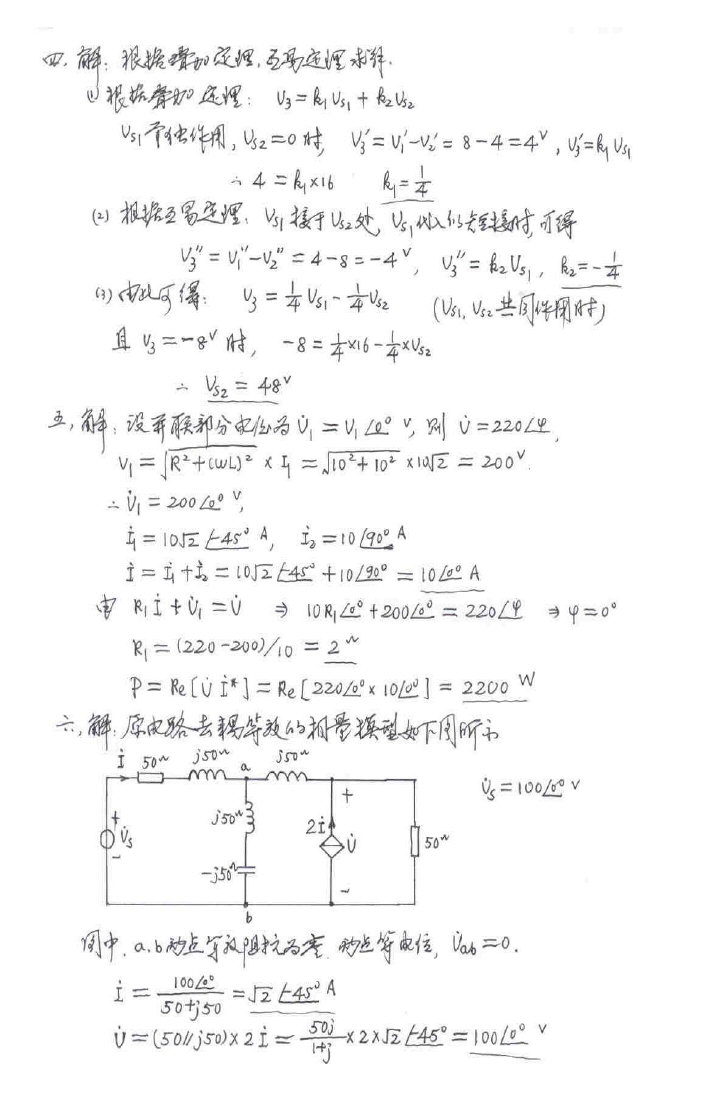 四、解：根据叠加定理，互易定理求解.
(1) 根据叠加定理： V₃=k₁Us₁+k₂Us₂
Us₁单独作用，Us₂=0时， V₃'=V₁'-V₂'=8-4=4ᵛ，V₃'=k₁Us₁
∴ 4=k₁×16 k₁=1/4
(2) 根据互易定理，Us₁接于Us₂处，Us₁处短接时，可得
V₃''=V₁''-V₂''=4-8=-4ᵛ，V₃''=k₂Us₁，k₂=-1/4
(3) 由此可得： V₃=1/4 Us₁-1/4 Us₂ (Us₁，Us₂共同作用时)
且 V₃=-8ᵛ时， -8=1/4×16-1/4×Us₂
∴ Us₂=48ᵛ
五、解：设并联部分电位为 U̇₁=U₁∠0° V，则 U̇=220∠φ，
V₁=√(R²+(ωL)²)×I₁=√(10²+10²)×10√2=200ᵛ.
∴ U̇₁=200∠0° V，
İ₁=10√2∠-45° A， İ₂=10∠90° A
İ=İ₁+İ₂=10√2∠-45°+10∠90°=10∠0° A
由 R₁İ+U̇₁=U̇ ⇒ 10R₁∠0°+200∠0°=220∠φ ⇒ φ=0°
R₁=(220-200)/10=2Ω
P=Re[U̇İ*]=Re[220∠0°×10∠0°]=2200 W
六、解：原电路去耦等效的相量模型如下图所示
İ 50Ω j50Ω a j50Ω
U̇s=100∠0° V
+ U̇s -
j50Ω
-j50Ω
2İ
+ U̇ -
50Ω
b
图中，a.b两点等效阻抗为零，两点等电位，U̇ab=0.
İ=100∠0°/(50+j50)=√2∠-45° A
U̇=(50//j50)×2İ=50j/(1+j)×2×√2∠-45°=100∠0° V